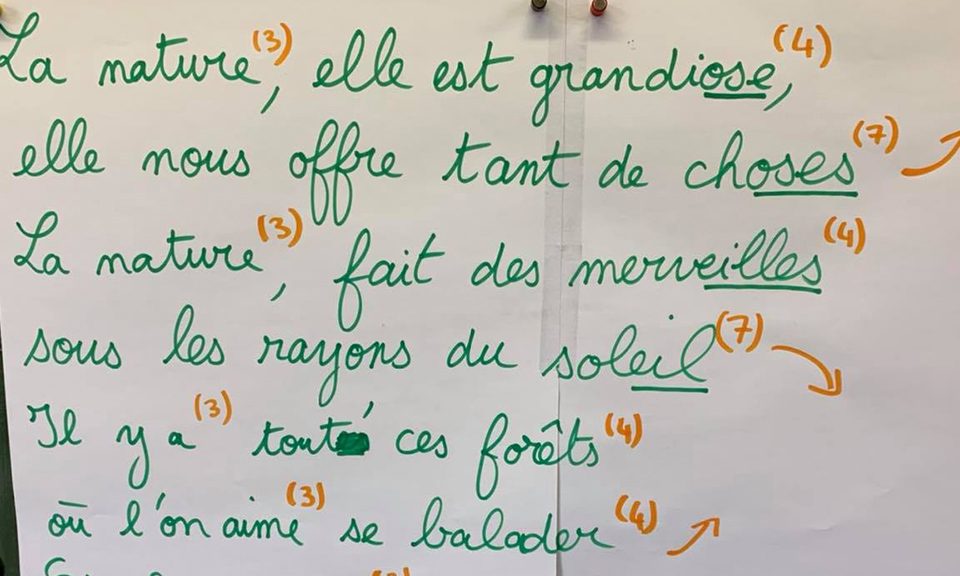 La nature (3), elle est grandiose, (4)
elle nous offre tant de choses (7)
La nature (3), fait des merveilles (4)
sous les rayons du soleil (7)
Il y a (3) tout ces forêts (4)
où l'on aime (3) se balader (4)